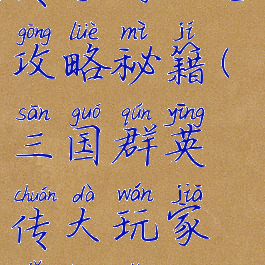 gōng lüè mì jí
攻略秘籍(
sān guó qún yīng
三国群英
chuán dà wán jiā
传大玩家